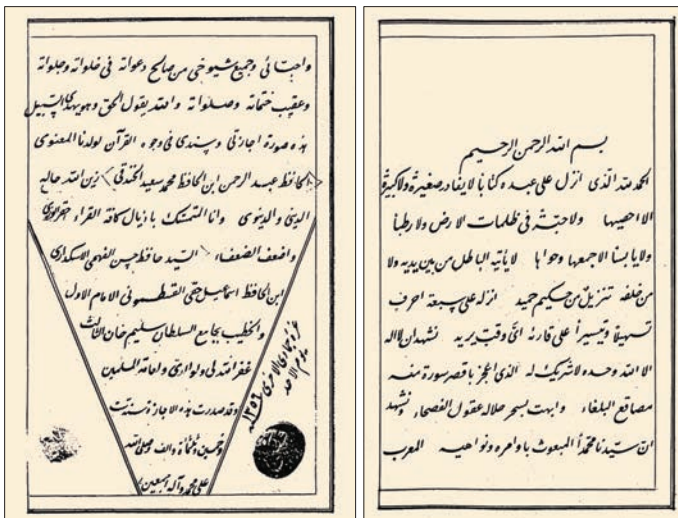 بسم الله الرحمن الرحيم
الحمد لله الذى انزل على عبده كتابا لا يغادر صغيرة ولا كبيرة
الا احصيها ولا حبة فى ظلمات الارض ولا رطبا
ولا يابسا الا جمعها وحواها لا يأتيه الباطل من بين يديه ولا
من خلفه تنزيل من حكيم حميد انزله على سبعة احرف
تسهيلا وتيسيرا على قارئه اىّ وقت يريد نشهد ان لا اله
الا الله وحده لا شريك له الذى اعجز باقصر سورة منه
مصاقع البلغاء وابهت بسحر حلاله عقول الفصحاء ونشهد
ان سيدنا محمداً المبعوث باوامره ونواهيه المعرب
واحبائى وجميع شيوخى من صالح دعواته فى خلواته وجلواته
وعقيب ختماته وصلواته والله يقول الحق وهو يهدى السبيل
هذه صورة اجازتى وسندى فى وجوه القرآن لولدنا المعنوى
الحافظ عبد الرحمن ابن الحافظ محمد سعيد الخندقى زين الله حاله
الدينى والدنيوى وانا المتمسك باذيال كافة القراء احقر الورى
واضعف الضعفاء السيد حافظ حسن الفهمى الاسكدارى
ابن الحافظ اسماعيل حقى القسطمونى الامام الاول
والخطيب بجامع السلطان سليم خان الثالث
غفر الله لى ولوالدى ولعامة المسلمين
وقد صدرت هذه الاجازة سنة ست
وخمسين وثلثمائة والف وصلى الله
على محمد وآله اجمعين
غرة جمادى الاخرى ١٣٥٦
يوم الاحد